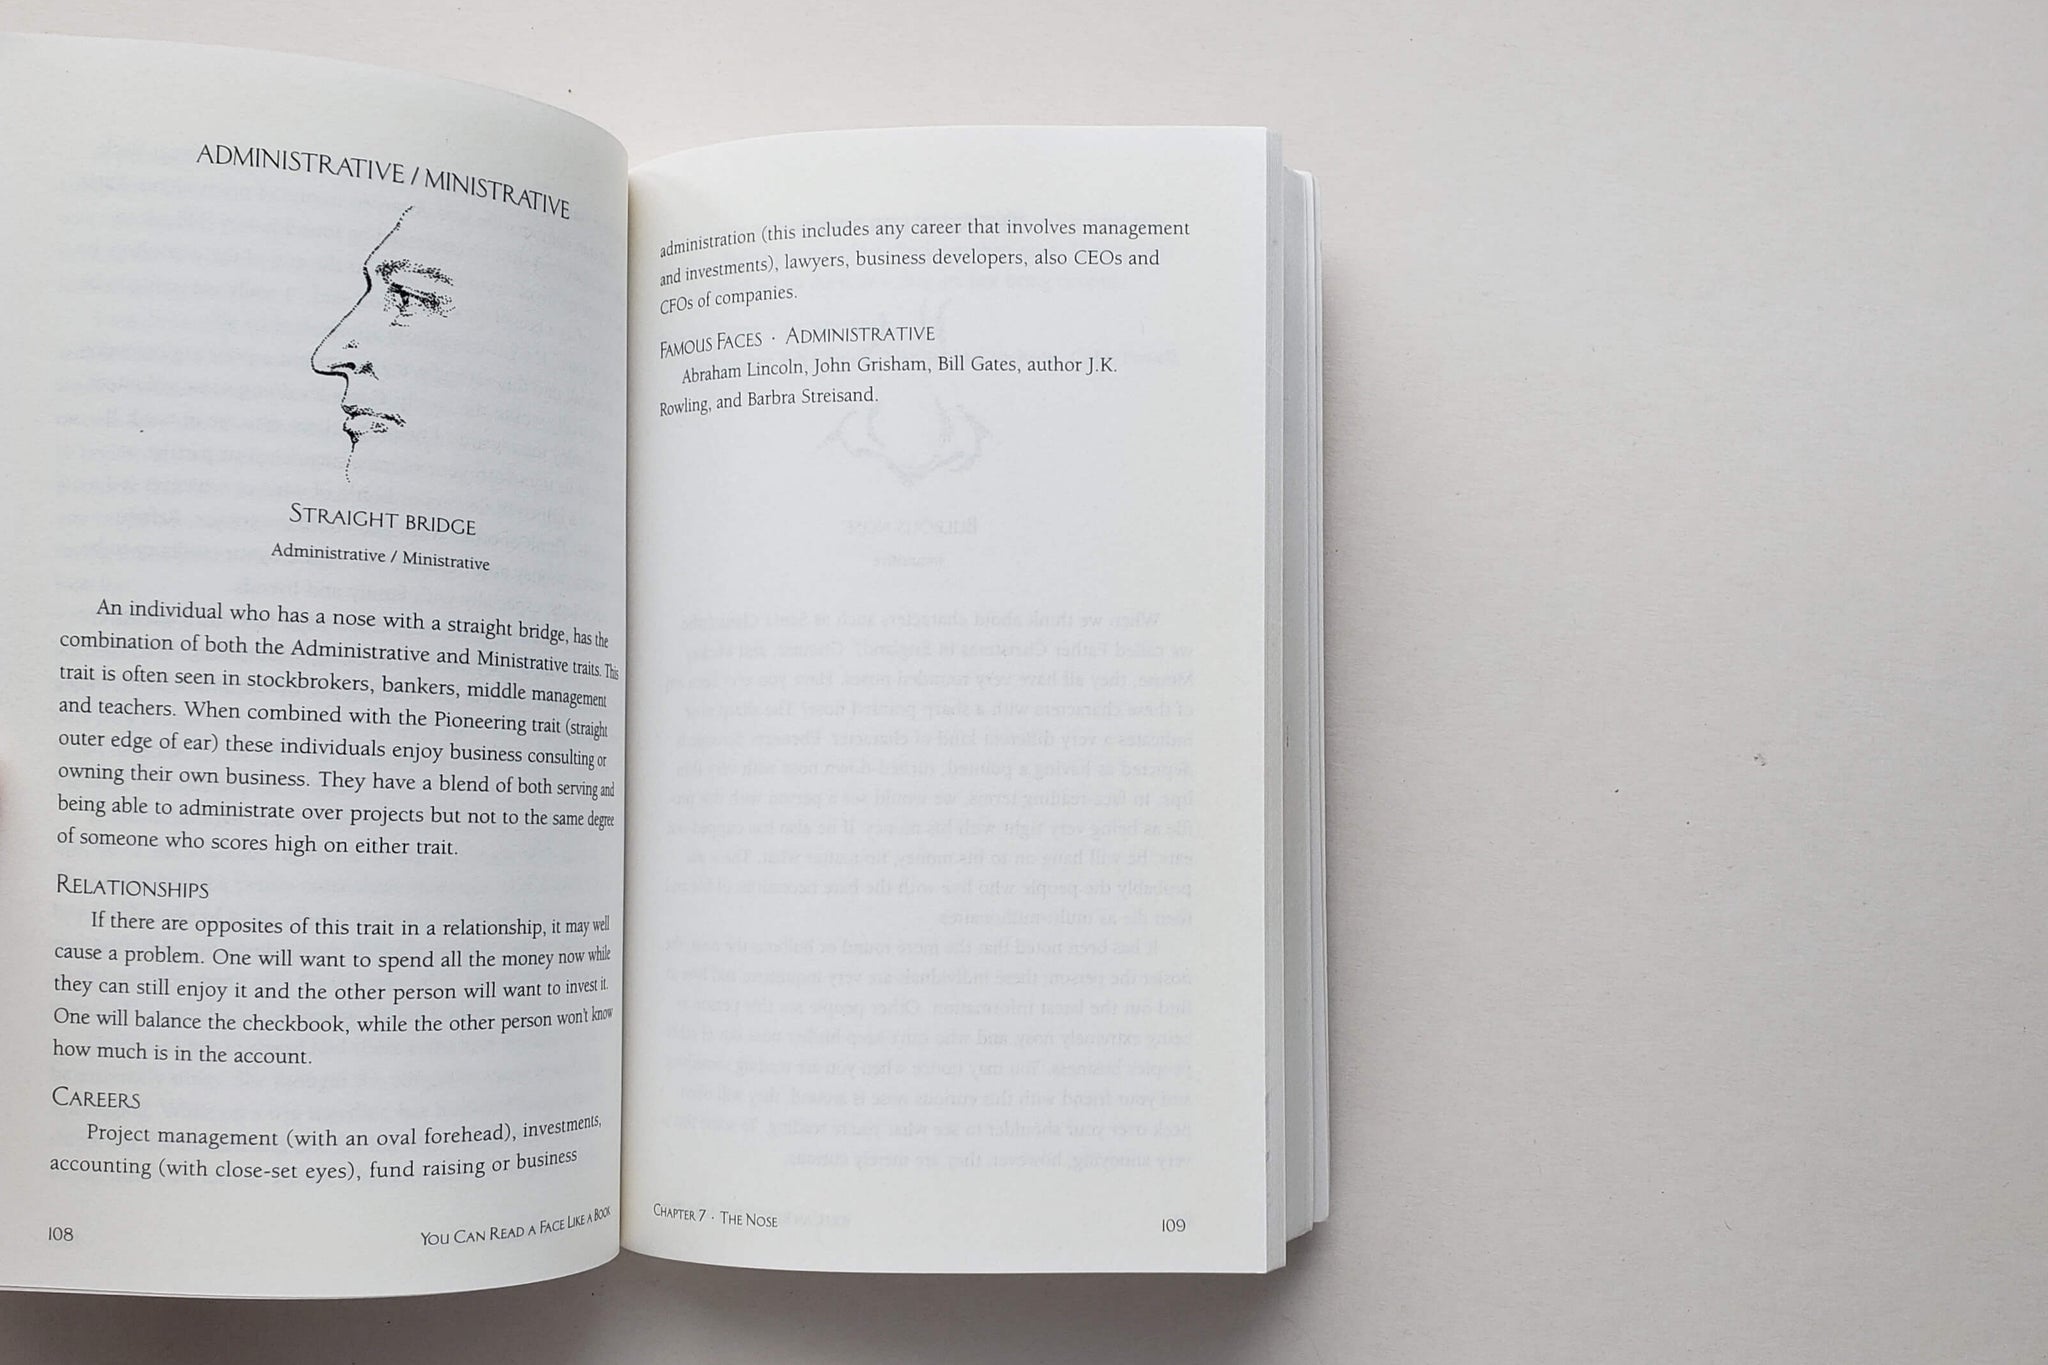 ADMINISTRATIVE / MINISTRATIVE
STRAIGHT BRIDGE
Administrative / Ministrative
An individual who has a nose with a straight bridge, has the
combination of both the Administrative and Ministrative traits. This
trait is often seen in stockbrokers, bankers, middle management
and teachers. When combined with the Pioneering trait (straight
outer edge of ear) these individuals enjoy business consulting or
owning their own business. They have a blend of both serving and
being able to administrate over projects but not to the same degree
of someone who scores high on either trait.
RELATIONSHIPS
If there are opposites of this trait in a relationship, it may well
cause a problem. One will want to spend all the money now while
they can still enjoy it and the other person will want to invest it.
One will balance the checkbook, while the other person won't know
how much is in the account.
CAREERS
Project management (with an oval forehead), investments,
accounting (with close-set eyes), fund raising or business
108
YOU CAN READ A FACE LIKE A BOOK
administration (this includes any career that involves management
and investments), lawyers, business developers, also CEOs and
CFOs of companies.
FAMOUS FACES · ADMINISTRATIVE
Abraham Lincoln, John Grisham, Bill Gates, author J.K.
Rowling, and Barbra Streisand.
CHAPTER 7 · THE NOSE
109